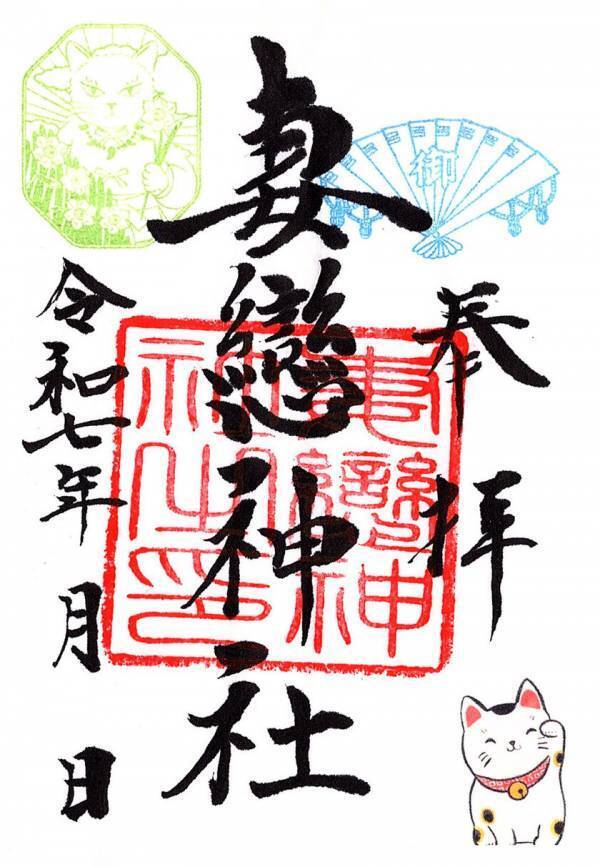 奉拝
妻戀神社
妻戀神社之印
令和七年 月 日
御